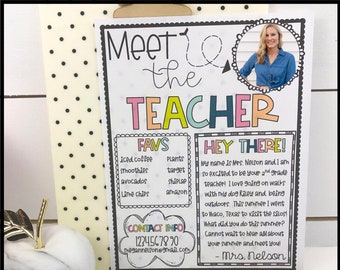 Meet
the
TEACHER
FAVS
iced coffee plants
smoothies target
avocados sharpie
lime chips amazon
CONTACT INFO
1234567890
megannelson@gmail.com
HEY THERE!
My name is Mrs. Nelson and I am
so excited to be your 2nd grade
teacher! I love going on walks
with my dog Riley and being
outside! This summer I went to
Waco, Texas to visit the silos!
What did you do this summer?
Cannot wait to hear all about
your summer and meet you!
- Mrs. Nelson